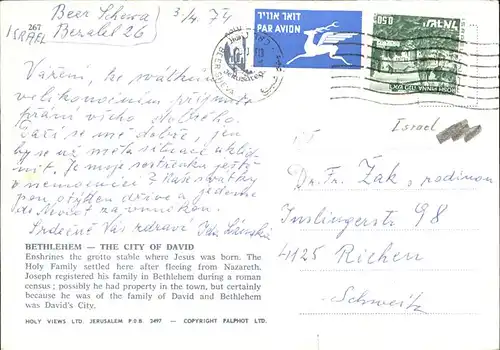 Beer Scheva
Bezalel 26
267
ISRAEL
3/4. 74
דואר אוויר
PAR AVION
BEER
0.50
ISRAEL
ROSH PINNA
Vážení, ke svátkům
velikonočním přijměte
přání všeho dobrého.
Daří se mi dobře, jen
by se už měla situace uklid-
nit. Je moje sestřenka ještě
v nemocnici? Naše svátky
jsou o týden dříve a jedeme
do za vnukem.
Srdečně Vás zdraví Ida
Israel
Dr. Fr. Žák, rodinou
Inslingerstr 98
4125 Riehen
Schweitz
BETHLEHEM — THE CITY OF DAVID
Enshrines the grotto stable where Jesus was born. The
Holy Family settled here after fleeing from Nazareth.
Joseph registered his family in Bethlehem during a roman
census ; possibly he had property in the town, but certainly
because he was of the family of David and Bethlehem
was David's City.
HOLY VIEWS LTD. JERUSALEM P.O.B. 2497 — COPYRIGHT PALPHOT LTD.